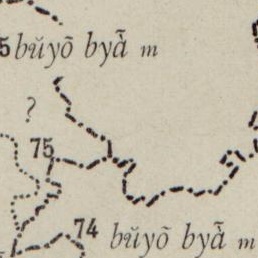 5 bŭyō byǡ m
?
75
74 bŭyō byǡ m